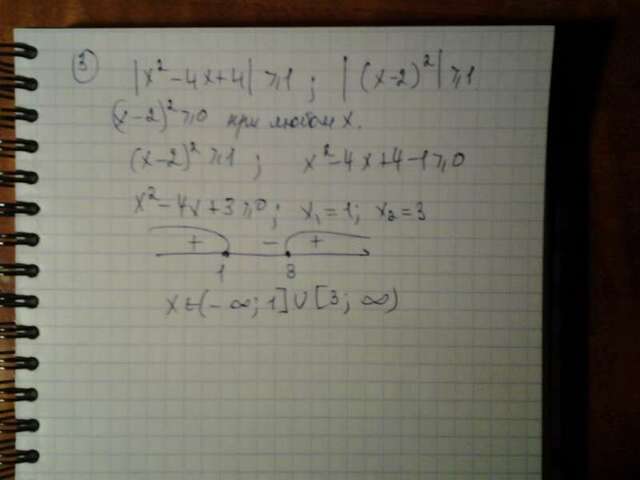 ③ |x² - 4x + 4| ⩾ 1 ; |(x-2)²| ⩾ 1
(x-2)² ⩾ 0 при любом x.
(x-2)² ⩾ 1 ; x² - 4x + 4 - 1 ⩾ 0
x² - 4x + 3 ⩾ 0 ; x₁ = 1; x₂ = 3
+ - +
1 3
x ∈ (-∞; 1] ∪ [3; ∞)